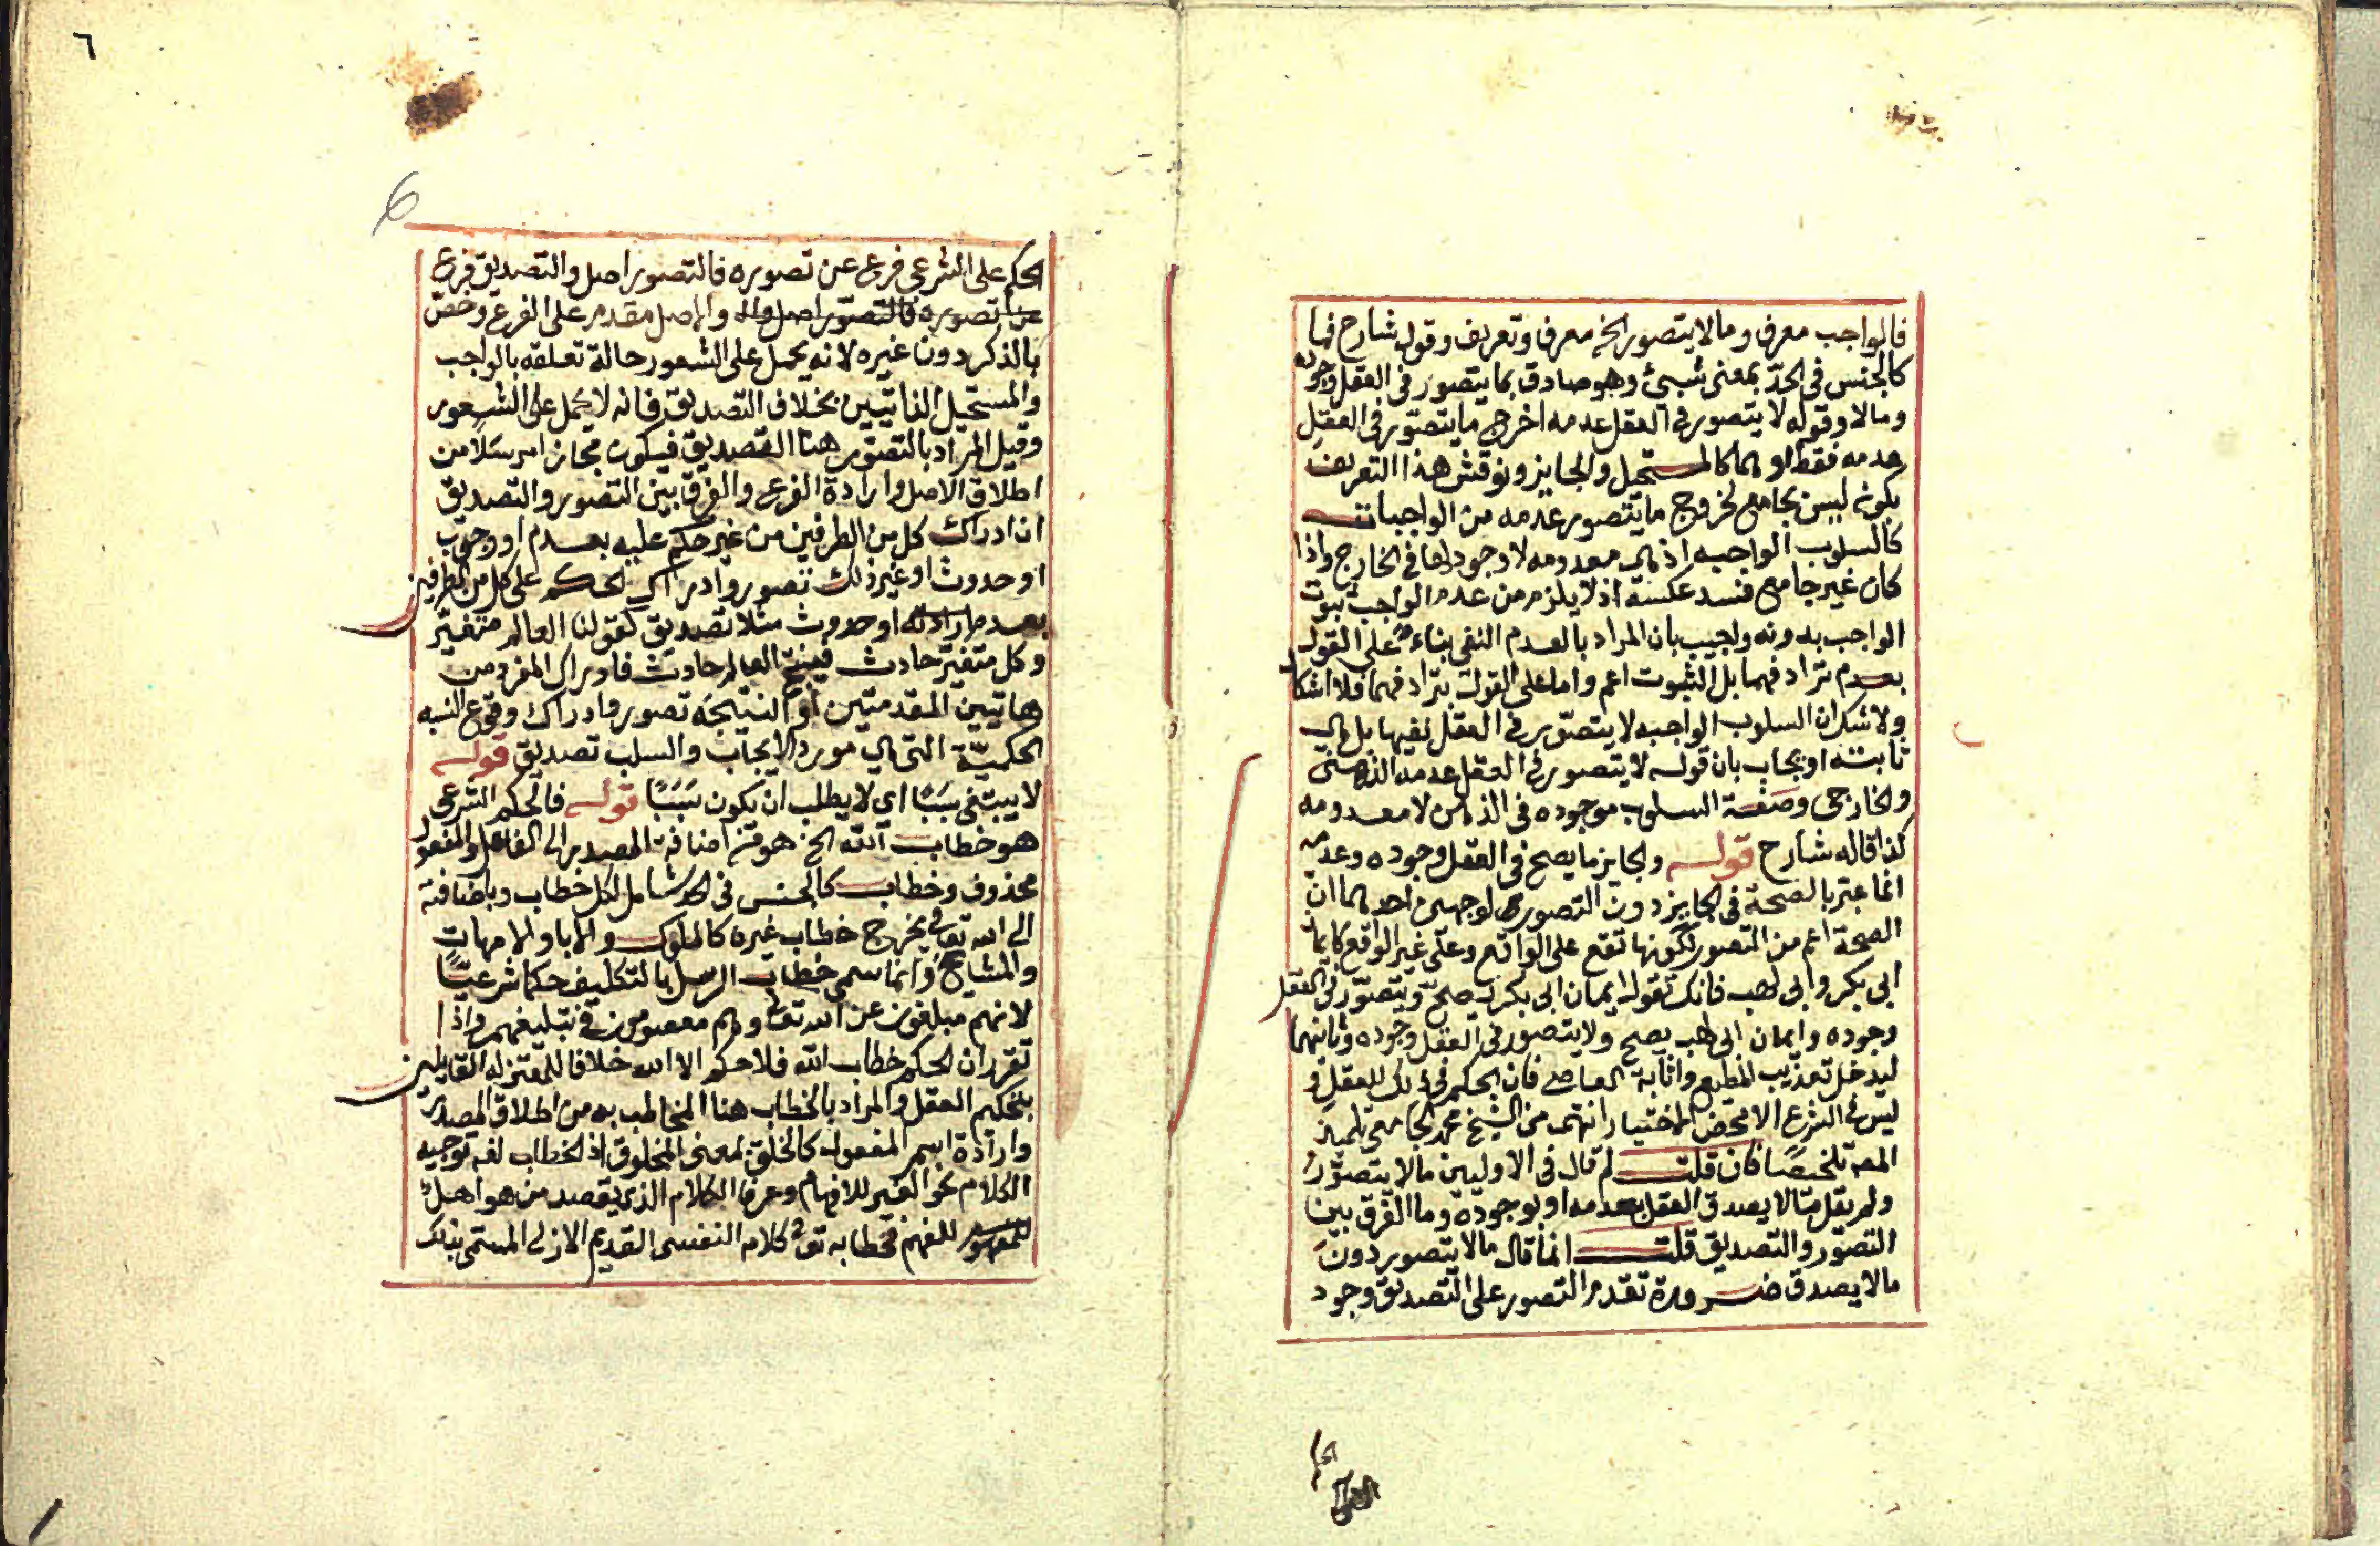 فالواجب معرف وما لا يتصور الخ معرف وتعريف وقول شارح فما
كالجنس في الحد بمعنى شيئ وهو صادق بما يتصور في العقل وجوده
وما لا وقوله لا يتصور في العقل عدمه اخرج ما يتصور في العقل
عدمه فقط او هما كالمستحيل والجايز ونوقش هذا التعريف
بكونه ليس بجامع لخروج ما يتصور عدمه من الواجبات
كالسلوب الواجبه اذ هي معدومه لا وجود لها في الخارج واذا
كان غير جامع فسد عكسه اذ لا يلزم من عدم الواجب ثبوت
الواجب بدونه واجيب بان المراد بالعدم النفي بناء على القول
بعدم ترادفهما بل الثبوت اعم واما على القول بترادفهما فلا اشكال
ولا شك ان السلوب الواجبه لا يتصور في العقل نفيها بل هي
ثابته او يجاب بان قوله لا يتصور في العقل عدمه الذهني
والخارجي وصفة السلوب موجوده في الذهن لا معدومه
كذا قاله شارح قوله والجايز ما يصح في العقل وجوده وعدمه
انما عبر بالصحة في الجايز دون التصور لوجهين احدهما ان
الصحة اعم من التصور لكونها تقع على الواقع وعلى غير الواقع كايمان
ابي بكر وابي لهب فانك تقول ايمان ابي بكر يصح ويتصور في العقل
وجوده وايمان ابي لهب يصح ولا يتصور في العقل وجوده وثانيهما
ليدخل تعذيب المطيع واثابة العاصي فان الحكم في ذلك للعقل و
ليس في الشرع الا محض الاختيار انتهى من الشيخ محمد الجامعي تلميذ
المص تلخيصا فان قلت لم قال في الاوليين ما لا يتصور
ولم يقل ما لا يصدق العقل بعدمه او بوجوده وما الفرق بين
التصور والتصديق قلت انما قال ما لا يتصور دون
ما لا يصدق ضرورة تقدم التصور على التصديق وجود
٦
6
الحكم على الشرعي فرع عن تصوره فالتصور اصل والتصديق فرع
عن تصوره فالتصور اصل وال والاصل مقدم على الفرع وخص
بالذكر دون غيره لانه يحمل على الشعور حالة تعلقه بالواجب
والمستحيل الذاتيين بخلاف التصديق فانه لا يحمل على الشعور
وقيل المراد بالتصور هنا التصديق فيكون مجازا مرسلا من
اطلاق الاصل وارادة الفرع والفرق بين التصور والتصديق
ان ادراك كل من الطرفين من غير حكم عليه بعدم او وجوب
او حدوث او غير ذلك تصور وادراك الحكم على كل من الطرفين
بعدم او حدوث مثلا تصديق كقولنا العالم متغير
وكل متغير حادث فينتج العالم حادث فادراك المفرد من
هاتين المقدمتين او النتيجه تصور وادراك وقوع النسبه
الحكمية التي هي مورد الايجاب والسلب تصديق قوله
لا يبتغى سببا اي لا يطلب ان يكون سببا قوله فالحكم الشرعي
هو خطاب الله الخ هو من اضافة المصدر الى الفاعل والمفعول
محذوف وخطاب كالجنس في الحد شامل لكل خطاب وباضافته
الى الله تعالى يخرج خطاب غيره كالملوك والابا والامهات
والمشايخ وانما سمى خطاب الرسل بالتكليف حكما شرعيا
لانهم مبلغون عن الله تعا وهم معصومون في تبليغهم واذا
تقرر ان الحكم خطاب الله فلا حكم الا الله خلافا للمعتزله القايلين
بتحكيم العقل والمراد بالخطاب هنا المخاطب به من اطلاق المصدر
وارادة اسم المفعول كالخلق بمعنى المخلوق اذ الخطاب لغه توجيه
الكلام نحو الغير للافهام وعرفا الكلام الذي يقصد من هو اهل
للفهم فخطابه تعا كلامه النفسي القديم الازلي المسمى بذلك